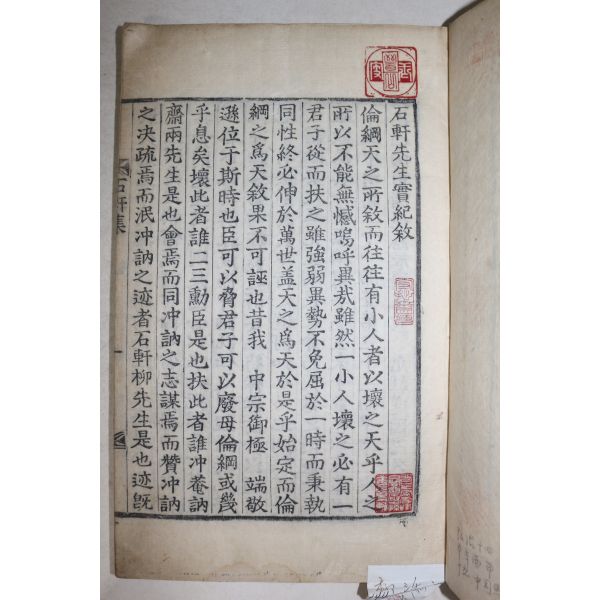 石軒先生實紀敘
倫綱天之所敘而往往有小人者以壞之天乎人之
所以不能無憾嗚呼異哉雖然一小人壞之必有一
君子從而扶之雖強弱異勢不免屈於一時而秉執
同性終必伸於萬世盖天之爲天於是乎始定而倫
綱之爲天敘果不可誣也昔我 中宗御極 端敬
遜位于斯時也臣可以脅君子可以廢母倫綱或幾
乎息矣壞此者誰二三勳臣是也扶此者誰冲菴訥
齋兩先生是也會焉而同冲訥之志謀焉而贊冲訥
之决疏焉而泯冲訥之迹者石軒柳先生是也迹旣
石軒集
一